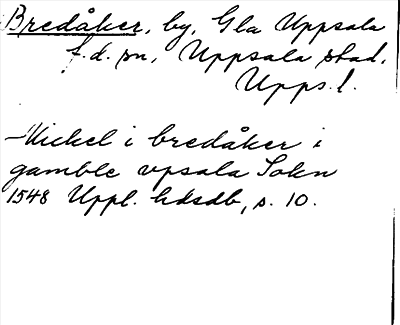 Bredåker, by, Gla Uppsala
f.d. sn, Uppsala stad,
Upps.l.
–Mickel i bredåker i
gamble vpsala Sokn
1548 Uppl. hdsdb, s. 10.